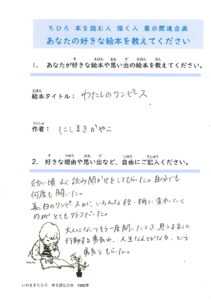 ちひろ 本を読む人 描く人 展示関連企画
あなたの好きな絵本を教えてください
1. あなたが好きな絵本や思い出の絵本を教えてください。
絵本タイトル：わたしのワンピース
作者：にしまきかやこ
2. 好きな理由や思い出など、ご自由にご記入ください。
幼い頃よく読み聞かせをしてもらった。自分でも
何度も開いた。
真っ白のワンピースが、いろんな柄に変わっていく
のがとても好きだった。
大人になってもう一度開いたとき、思うままに
行動する勇気が、人生なんとかなる、という
勇気をもらった。
いわさきちひろ 本を読む少女